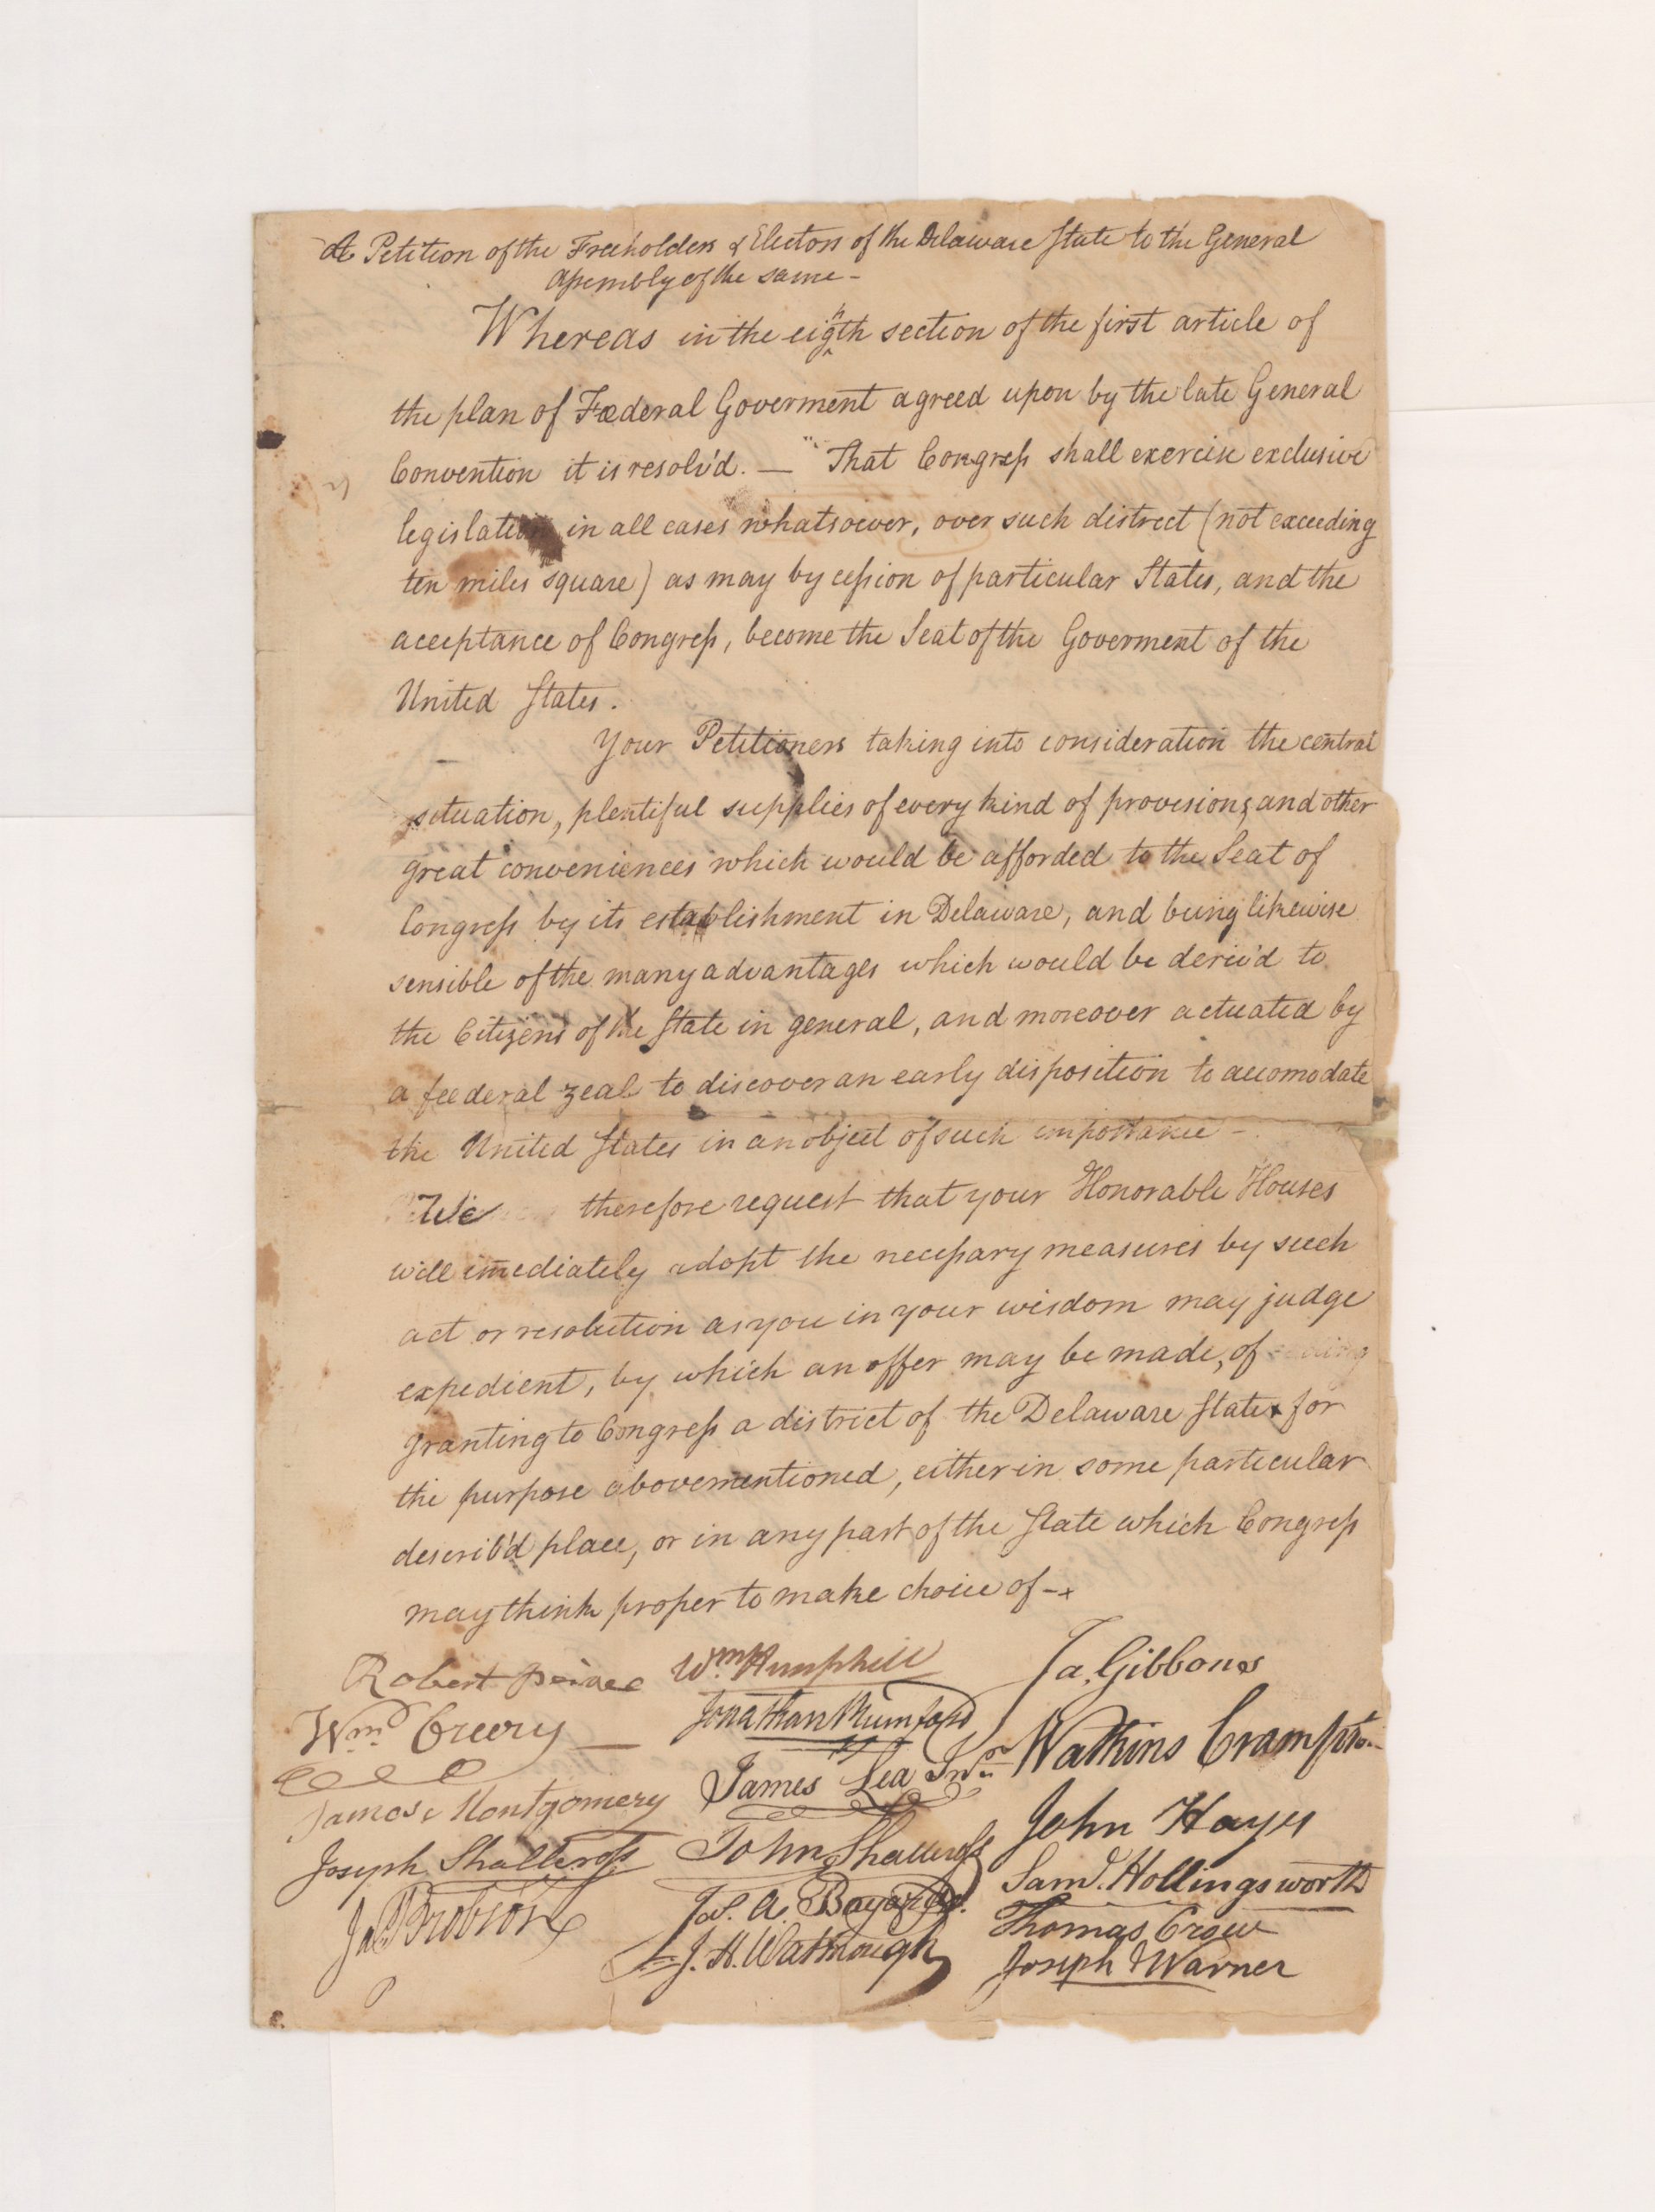 A Petition of the Freeholders & Electors of the Delaware State to the General
Assembly of the same –
Whereas in the eighth section of the first article of
the plan of Fœderal Goverment agreed upon by the late General
Convention it is resolv'd. — "That Congress shall exercise exclusive
legislation in all cases whatsoever, over such district (not exceeding
ten miles square) as may by cession of particular States, and the
acceptance of Congress, become the Seat of the Goverment of the
United States.
Your Petitioners taking into consideration the central
situation, plentiful supplies of every kind of provisions, and other
great conveniences which would be afforded to the Seat of
Congress by its establishment in Delaware, and being likewise
sensible of the many advantages which would be deriv'd to
the Citizens of the State in general, and moreover actuated by
a fœderal zeal to discover an early disposition to accomodate
the United States in an object of such importance –
We therefore request that your Honorable Houses
will imediately adopt the necessary measures by such
act or resolution as you in your wisdom may judge
expedient, by which an offer may be made, of
granting to Congress a district of the Delaware State for
the purpose abovementioned, either in some particular
describ'd place, or in any part of the State which Congress
may think proper to make choice of –
Robert Wm. Hemphill Ja. Gibbons
Wm. Creery Jonathan Rumford Watkins Crampton
James Lea Junr. John Hayes
James Montgomery John Shallcross Saml. Hollingsworth
Joseph Shallcross Jas. A. Bayard Thomas Crow
Jas. Brobson J. H. Watmough Joseph Warner